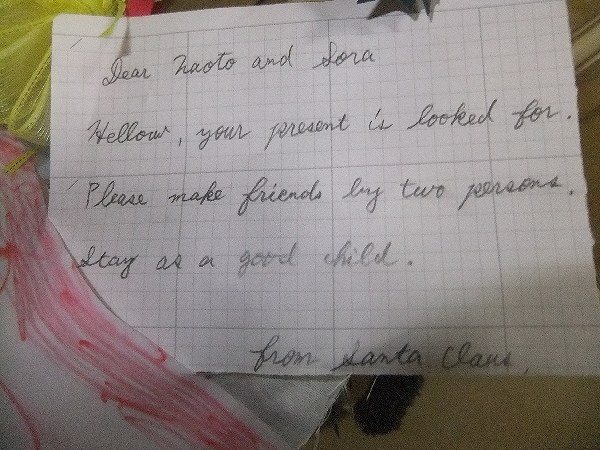 Dear Naoto and Sora
Hellow, your present is looked for.
Please make friends by two persons.
Stay as a good child.
from Santa Claus.